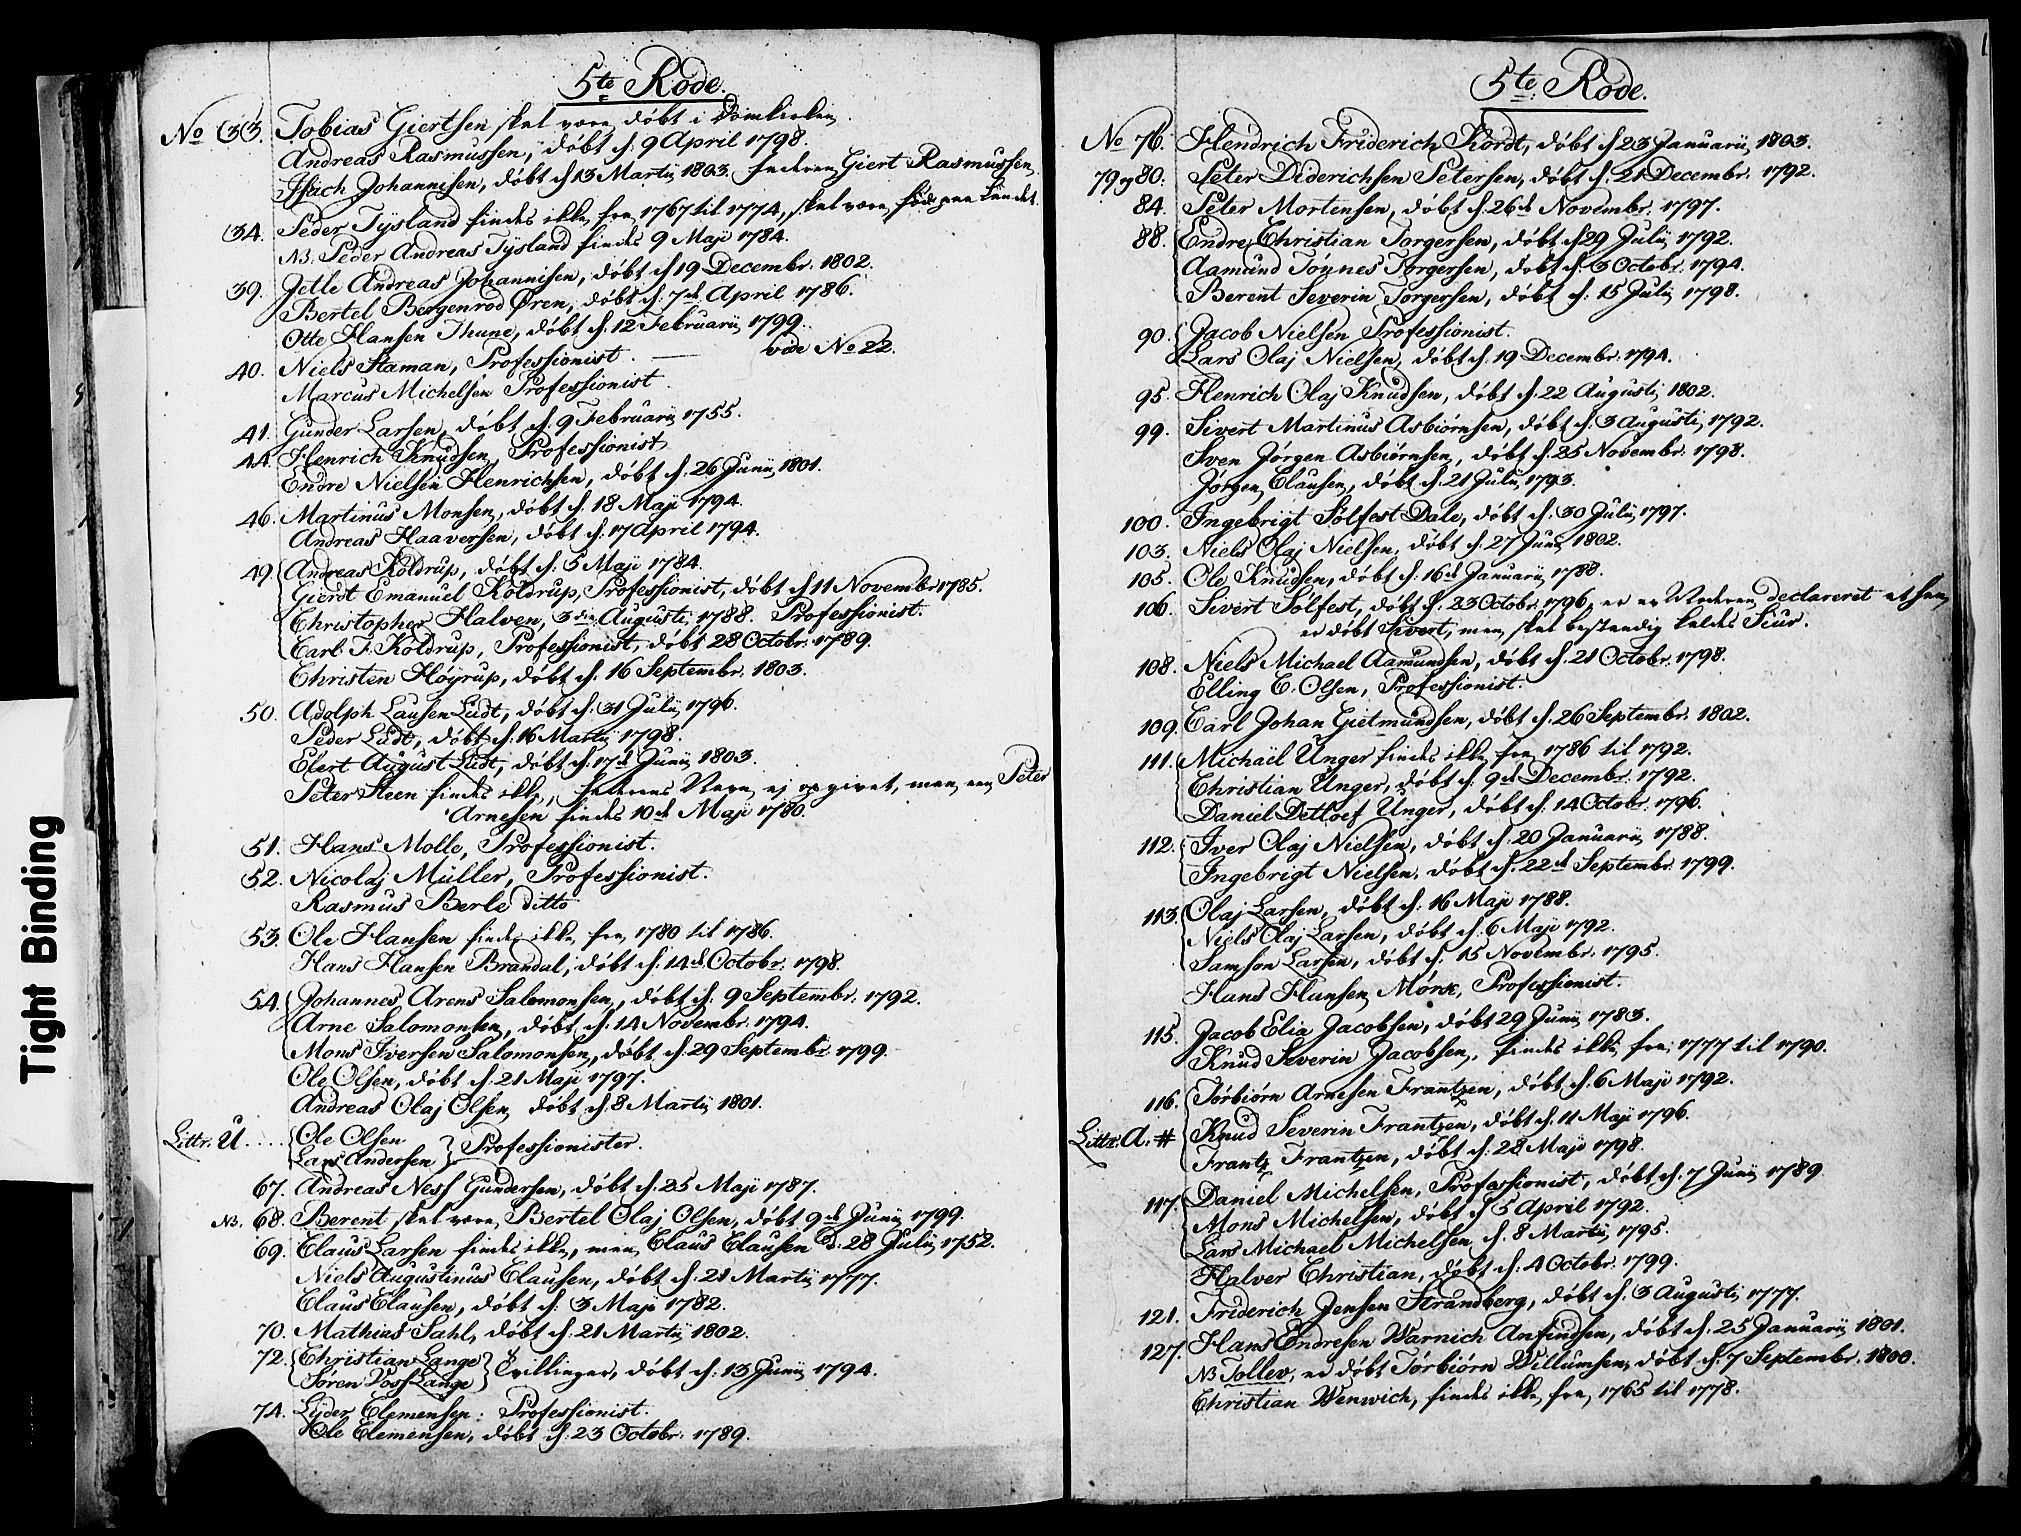 Tight Binding
5te Rode.
No 33. Tobias Giertsen skal være døbt i Domkirken.
Andreas Rasmussen, døbt d: 9 April 1798.
Isach Johannesen, døbt d 13 Martij 1803. Faderen Giert Rasmussen
34. Peder Tysland findes ikke fra 1767 til 1774, skal være fød paa Landet.
NB. Peder Andreas Tysland findes 9 Maji 1784.
39. Jetle Andreas Johannesen, døbt d 19 Decembr. 1802.
Bertel Bergenrod Øren, døbt d: 7de April 1786.
Otte Hansen Thune, døbt d. 12 Februarij 1799.
40. Niels Staman, Professionist. — vide No 22.
Marcus Michelsen Professionist.
41. Gunder Larsen, døbt d. 9 Februarij 1755.
44. Henrich Knudsen, Professionist
Endre Nielsen Henrichsen, døbt d. 26 Junij 1801.
46. Martinus Monsen, døbt d. 18 Maji 1794.
Andreas Haaversen, døbt d. 17 April 1794.
49. Andreas Koldrup, døbt d: 5 Maji 1784.
Gierdt Emanuel Koldrup, Professionist, døbt d 11 Novembr 1785.
Christopher Halven, 3die Augusti 1788. Professionist.
Carl F. Koldrup, Professionist, døbt 28 Octobr. 1789.
Christen Høyrup, døbt d. 16 Septembr. 1803.
50. Adolph Lausen Lüdt, døbt d: 31 Julij 1796.
Peder Lüdt, døbt d: 16 Martij 1798.
Elert August Lüdt, døbt d: 17de Junij 1803.
Peter Steen findes ikke, Faderens Navn ej opgivet, men en Peter
Arnesen findes 10de Maji 1780.
51. Hans Molle, Professionist.
52. Nicolaj Müller, Professionist.
Rasmus Berle ditto
53. Ole Hansen findes ikke fra 1780 til 1786.
Hans Hansen Brandal, døbt d: 14de Octobr. 1798.
54. Johannes Arens Salomonsen, døbt d: 9 Septembr. 1792.
Arne Salomonsen, døbt d. 14 Novembr. 1794.
Mons Iversen Salomonsen, døbt d. 29 Septembr 1799.
Ole Olsen, døbt d. 21 Maji 1797.
Andreas Olaj Olsen døbt d. 8 Martij 1801.
Littr. U. .... Ole Olsen
Lars Andersen } Professionister.
67. Andreas Ness Gundersen, døbt d: 25 Maji 1787.
NB. 68. Berent skal være Bertel Olaj Olsen, døbt 9de Junij 1799.
69. Claus Larsen findes ikke, men Claus Clausen d. 28 Julij 1752.
Niels Augustinus Clausen, døbt d. 21 Martij 1777.
Claus Clausen, døbt d: 3 Maji 1782.
70. Mathias Sahl, døbt d. 21 Martij 1802.
72. Christian Lange
Søren Voss Lange } Tvillinger, døbt d: 13 Junij 1794.
74. Lyder Clemensen. Professionist.
Ole Clemensen, døbt d: 23 Octobr: 1789.
5te Rode.
No 76. Hendrich Friderich Kordt, døbt d 23 Januarij 1803.
79 og 80. Peter Diderichsen Petersen, døbt d: 21 Decembr. 1792.
84. Peter Mortensen, døbt d. 26de Novembr. 1797.
88. Endre Christian Torgersen, døbt d 29 Julij 1792.
Aamund Tønnes Torgersen, døbt d. 3 Octobr. 1794.
Berent Severin Torgersen, døbt d: 15 Julij 1798.
90. Jacob Nielsen Professionist.
Lars Olaj Nielsen, døbt d. 19 Decembr. 1794.
95. Henrich Olaj Knudsen, døbt d. 22 Augusti 1802.
99. Sivert Martinus Asbiørnsen, døbt d. 3 Augusti 1792.
Sven Jørgen Asbiørnsen, døbt d. 25 Novembr. 1798.
Jørgen Clausen, døbt d. 21 Julij 1793.
100. Ingebrigt Solfest Dale, døbt d. 30 Julij 1797.
103. Niels Olaj Nielsen, døbt d. 27 Junij 1802.
105. Ole Knudsen, døbt d. 16de Januarij 1788.
106. Sivert Solfest, døbt d. 23 Octobr. 1796, er av Moderen declareret at han
er døbt Sivert, men skal bestendig kaldes Siur.
108. Niels Michael Aamundsen, døbt d. 21 Octobr. 1798.
Elling C. Olsen, Professionist.
109. Carl Johan Gietmundsen, døbt d. 26 Septembr. 1802.
111. Michaël Unger findes ikke fra 1786 til 1792.
Christian Unger, døbt d. 9de Decembr. 1792.
Daniel Detloef Unger, døbt d: 14 Octobr. 1796.
112. Iver Olaj Nielsen, døbt d. 20 Januarij 1788.
Ingebrigt Nielsen, døbt d. 22de Septembr. 1799.
113. Olaj Larsen, døbt d. 16 Maji 1788.
Niels Olaj Larsen, døbt d. 6 Maji 1792.
Samson Larsen, døbt d. 15 Novembr. 1795.
Hans Hansen Mørk, Professionist.
115. Jacob Elia Jacobsen, døbt 29 Junij 1783.
Knud Severin Jacobsen, findes ikke fra 1777 til 1790.
116. Torbiørn Arnesen Frantzen, døbt d. 6 Maji 1792.
Littr. A. # Knud Severin Frantzen, døbt d: 11 Maji 1796.
Frantz Frantzen, døbt d: 28 Maji 1798.
117. Daniel Michelsen, Professionist, døbt d. 7 Junij 1789.
Mons Michelsen, døbt d 5 April 1792.
Lars Michael Michelsen d. 8 Martij 1795.
Halver Christian, døbt d: 4 Octobr. 1799.
121. Friderich Jensen Strandberg, døbt d. 3 Augusti 1777.
127. Hans Endresen Warnich Anfindsen, døbt d. 25 Januarij 1801.
NB Tollev, er døbt Torbiørn Willumsen, døbt d. 7 Septembr. 1800.
Christian Wenwich, findes ikke fra 1765 til 1778.